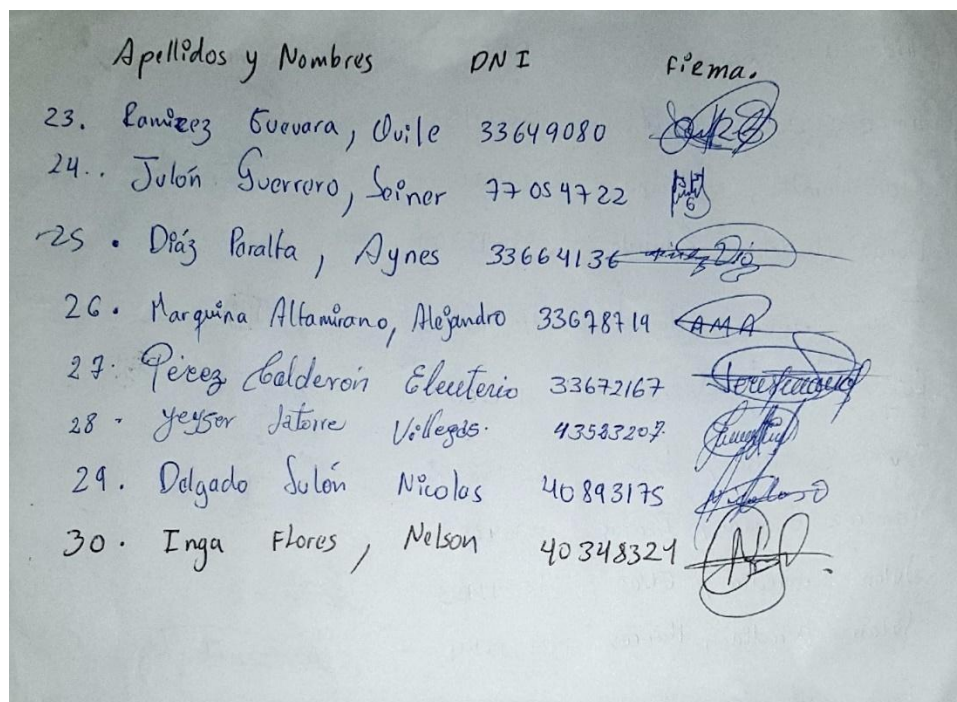 Apellidos y Nombres DNI firma.
23. Ramirez Guevara, Ovile 33649080
24.. Julón Guerrero, Seiner 77054722
25. Diáz Paralta, Aynes 33664136
26. Marquina Altamirano, Alejandro 33678719 AMA
27. Pérez Calderón Eleuterio 33672167
28 - Yeyser Latorre Villegas. 43583207.
29. Delgado Julón Nicolas 40893175
30. Inga Flores, Nelson 40348321